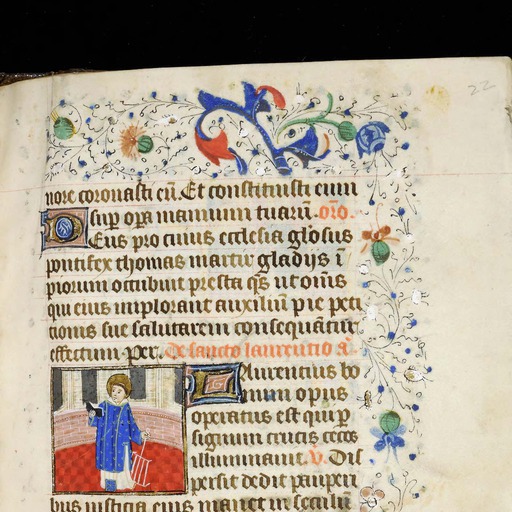 22
nore coronasti eū. Et constituisti eum
sup opa manuum tuarū. orō.
Deus pro cuius ecclesia gl'osus
pontifex thomas martir gladijs ī
piorum occubuit presta qs ut oms
qui eius implorant auxiliū pie peti
tionis sue salutarem consequātur
effectum. Per. De sancto laurentio a.
Laurentius bo
num opus
operatus est qui p
signum crucis cecos
illuminauit. V. Dis
persit dedit pauperi
bus iusticia eius manet in seculū